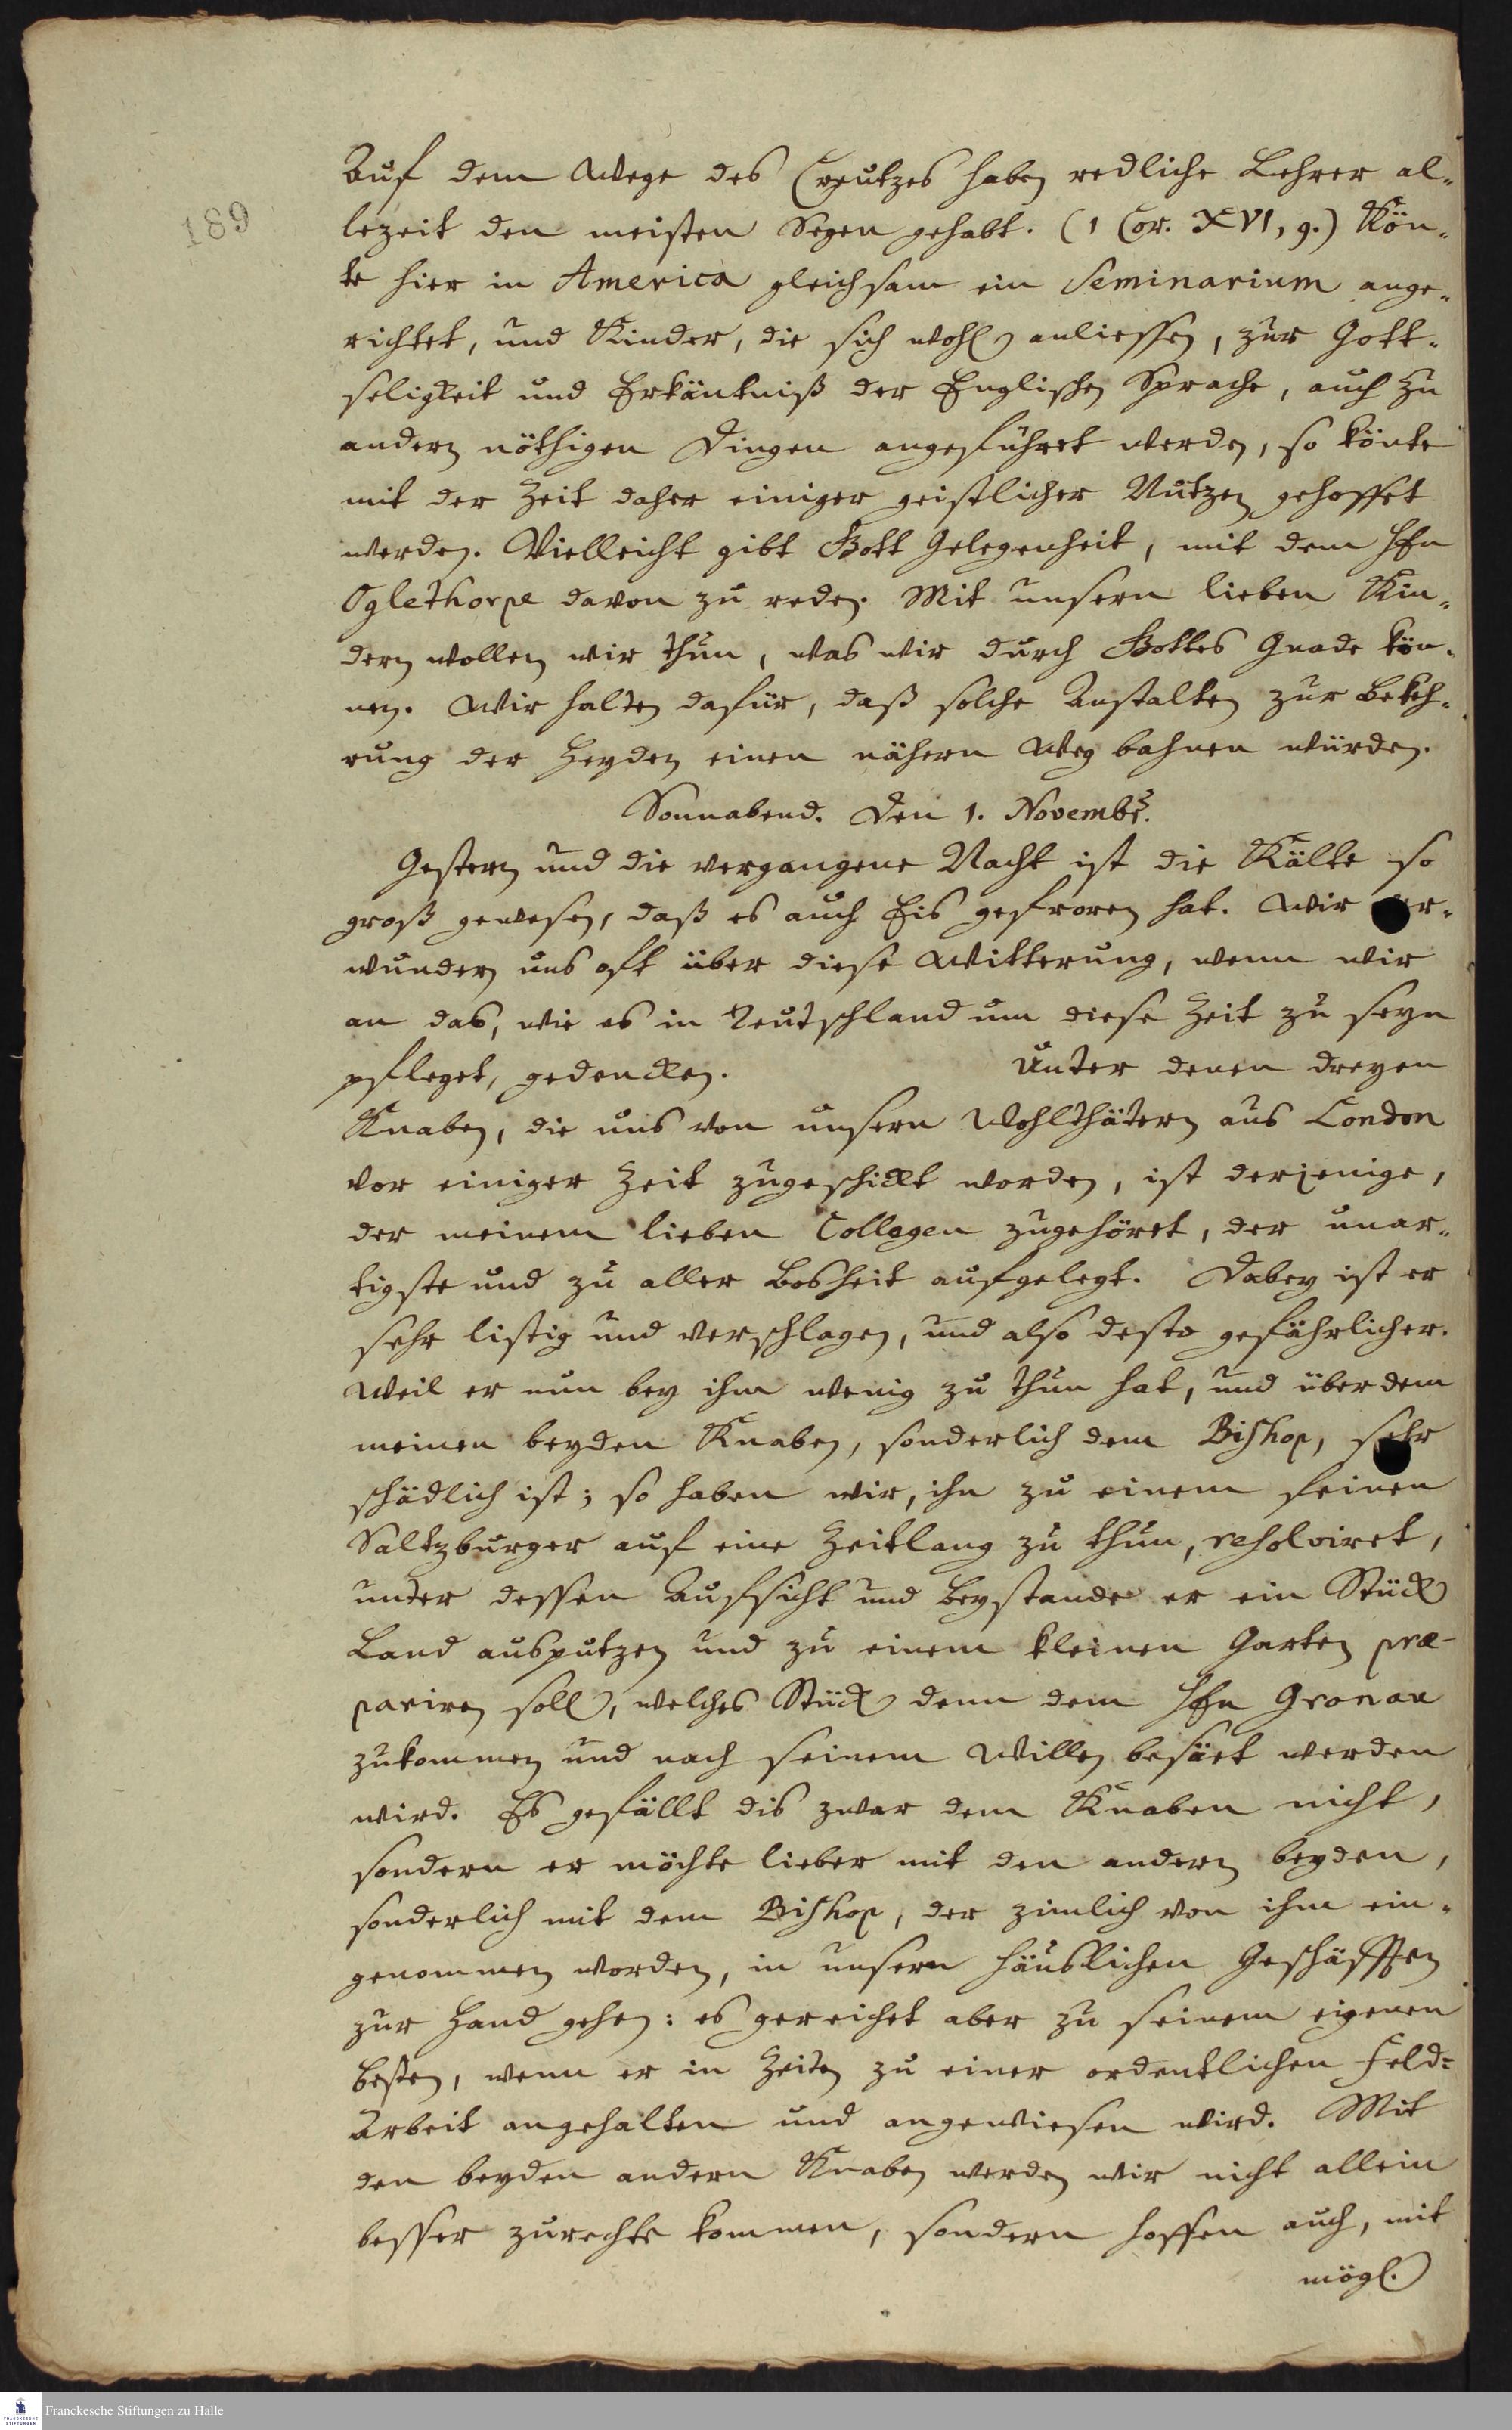 189
Auf dem Wege des Creutzes haben redliche Lehrer al-
lezeit den meisten Segen gehabt. (1 Cor. XVI, 9.) Kön-
te hier in America gleichsam ein Seminarium ange-
richtet, und Kinder, die sich wohl anliessen, zur Gott-
seligkeit und Erkäntniß der Englischen Sprache, auch zu
andern nöthigen Dingen angeführet werden, so könte
mit der Zeit daher einiger geistlicher Nutzen gehoffet
werden. Vielleicht gibt Gott Gelegenheit, mit dem Hfn
Oglethorpe davon zu reden. Mit unsern lieben Kin-
dern wollen wir thun, was wir durch Gottes Gnade kön-
nen. Wir halten dafür, daß solche Anstalten zur Bekeh-
rung der Heyden einen nähern Weg bahnen würden.
Sonnabend. Den 1. Novembr.
Gestern und die vergangene Nacht ist die Kälte so
groß gewesen, daß es auch Eis gefroren hat. Wir ver-
wundern uns oft über diese Witterung, wenn wir
an das, wie es in Teutschland um diese Zeit zu seyn
pfleget, gedencken. Unter denen dreyen
Knaben, die uns von unsern Wohlthätern aus London
vor einiger Zeit zugeschickt worden, ist derjenige,
der meinem lieben Collegen zugehöret, der unar-
tigste und zu aller Bosheit aufgelegt. Dabey ist er
sehr listig und verschlagen, und also desto gefährlicher.
Weil er nun bey ihm wenig zu thun hat, und über dem
meinen beyden Knaben, sonderlich dem Bishop, sehr
schädlich ist; so haben wir, ihn zu einem feinen
Saltzburger auf eine Zeitlang zu thun, resolviret,
unter dessen Aufsicht und Beystande er ein Stück
Land ausputzen und zu einem kleinen Garten præ-
pariren soll, welches Stück denn dem Hfn Gronau
zukommen und nach seinem Willen besäet werden
wird. Es gefällt dis zwar dem Knaben nicht,
sondern er möchte lieber mit den andern beyden,
sonderlich mit dem Bishop, der zimlich von ihm ein-
genommen worden, in unsern häuslichen Geschäfften
zur Hand gehen: es gereichet aber zu seinem eigenen
besten, wenn er in Zeiten zu einer ordentlichen Feld-
Arbeit angehalten und angewiesen wird. Mit
den beyden andern Knaben werden wir nicht allein
besser zurechte kommen, sondern hoffen auch, mit
mögl.
Franckesche Stiftungen zu Halle